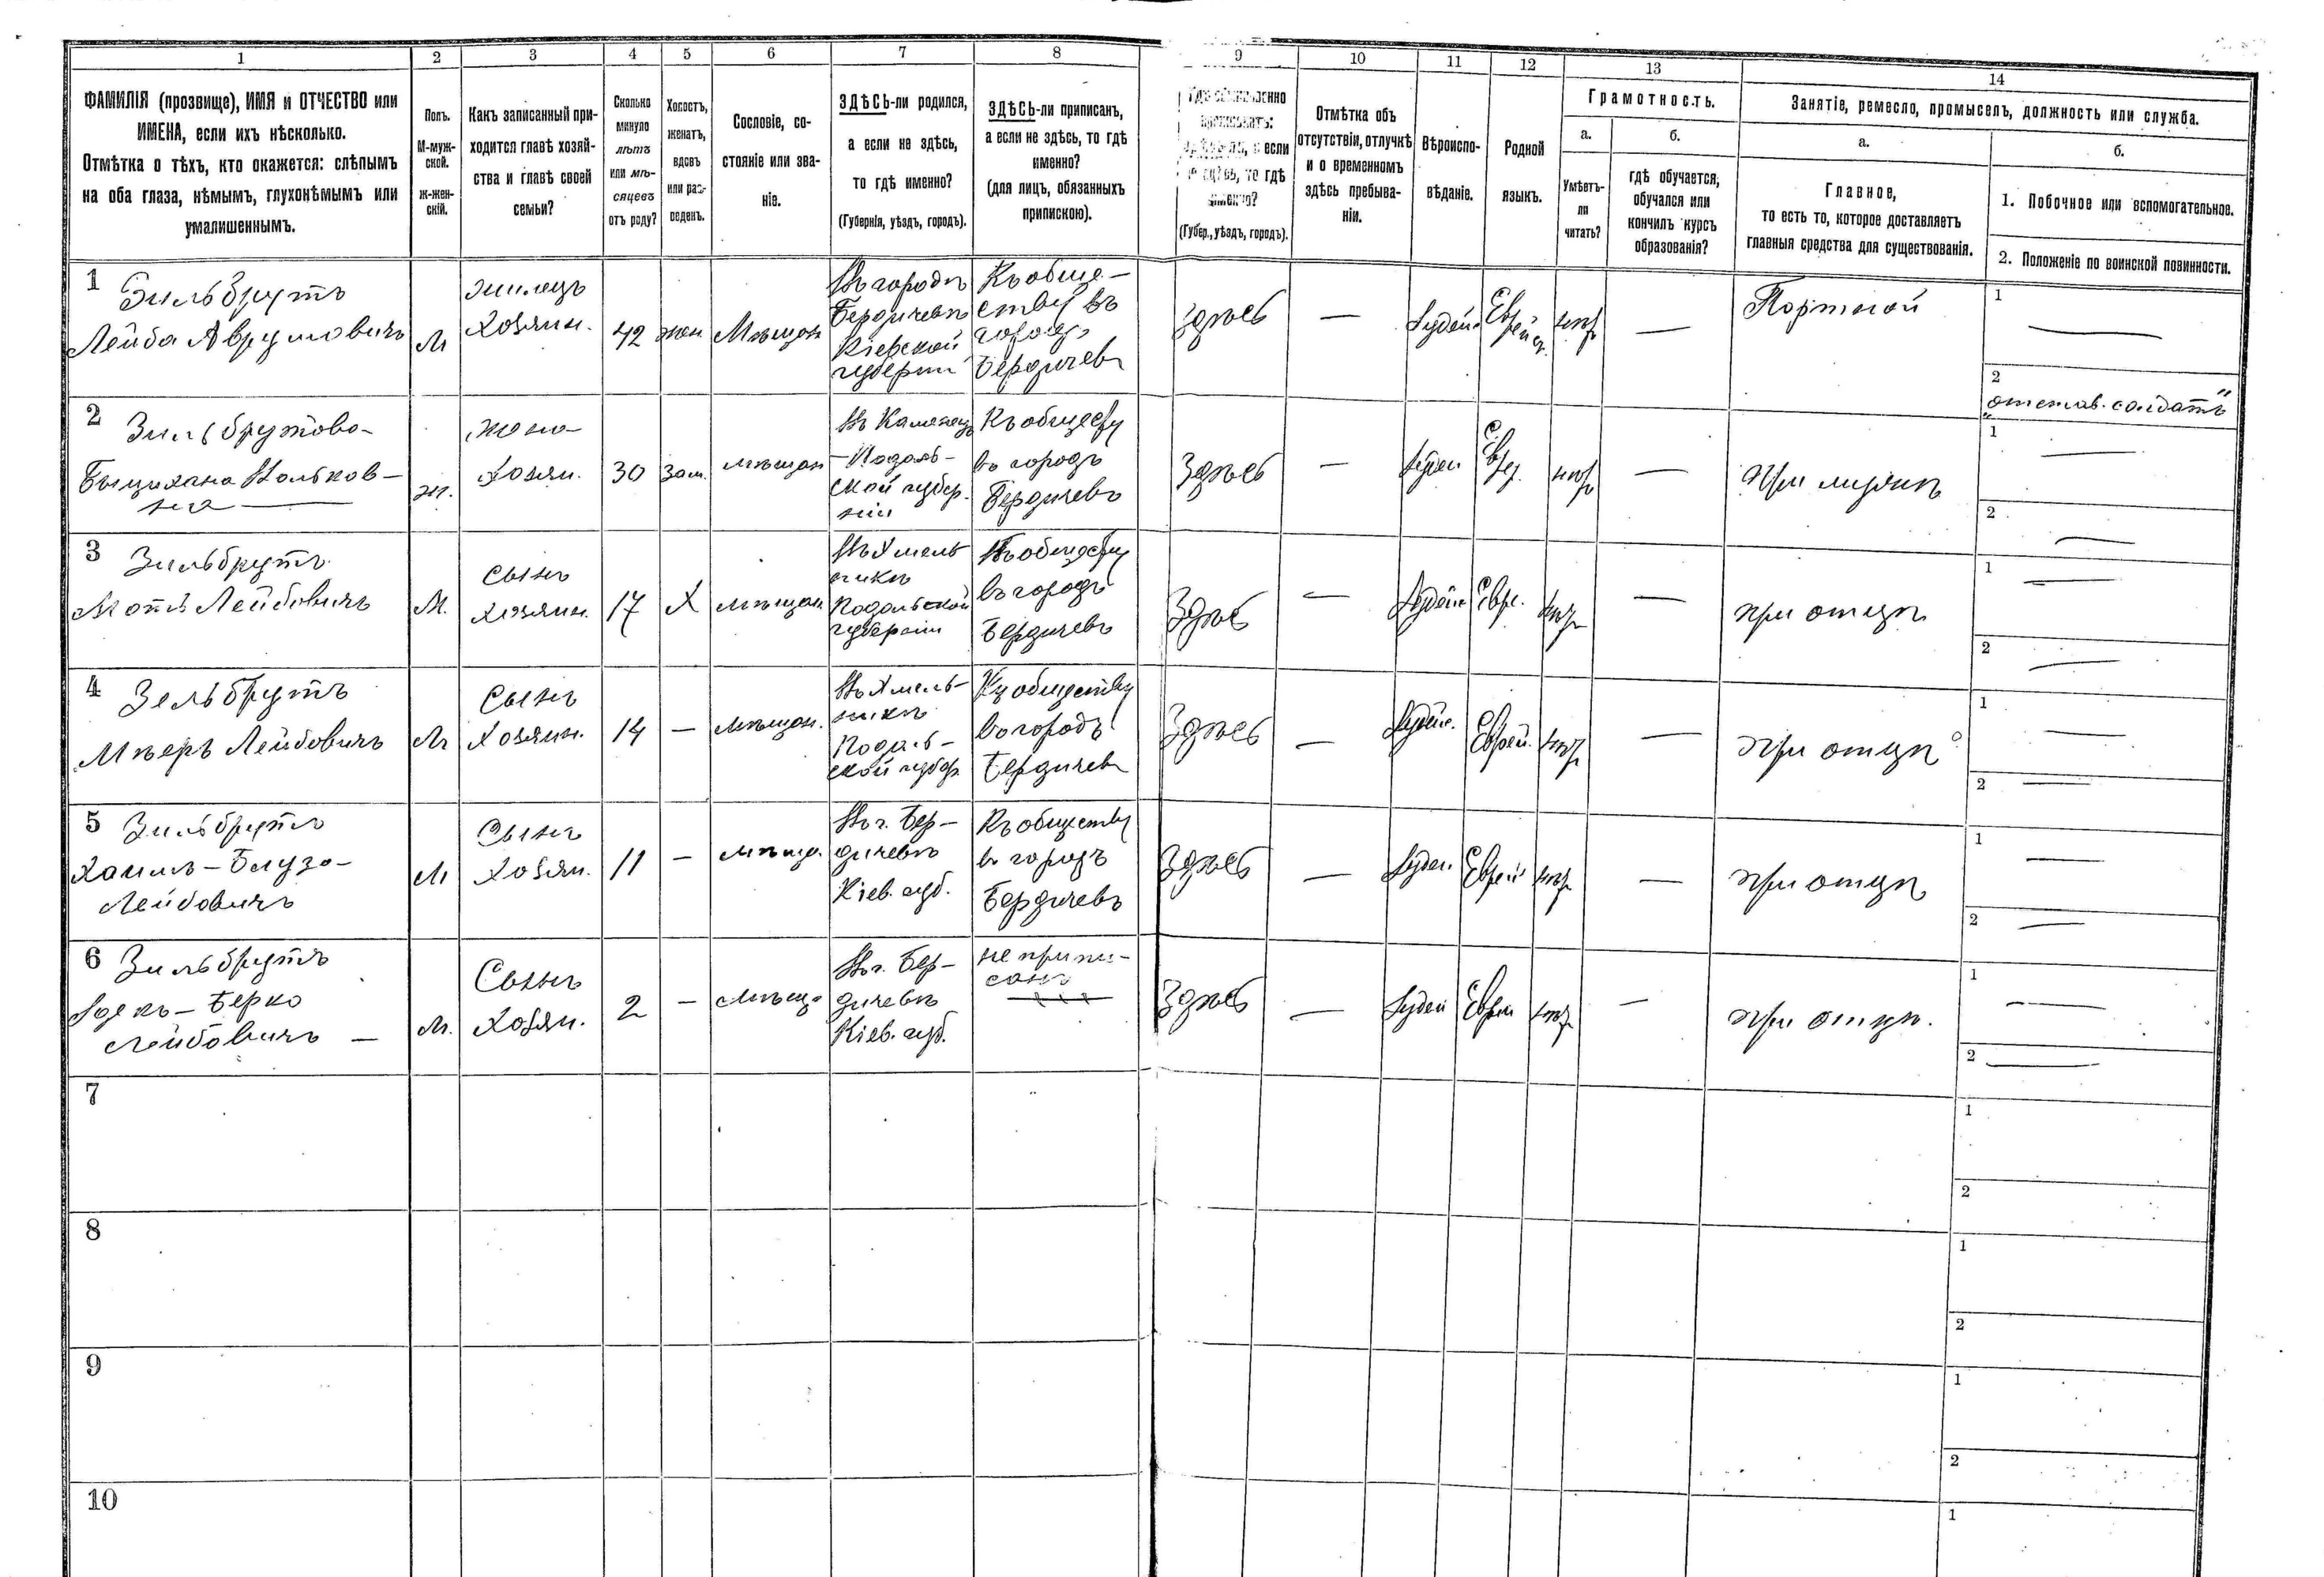 1 2 3 4 5 6 7 8 9 10 11 12 13 14
ФАМИЛІЯ (прозвище), ИМЯ и ОТЧЕСТВО или
ИМЕНА, если ихъ нѣсколько.
Отмѣтка о тѣхъ, кто окажется: слѣпымъ
на оба глаза, нѣмымъ, глухонѣмымъ или
умалишеннымъ.
Полъ.
М-муж-
ской.
Ж-жен-
скій.
Какъ записанный при-
ходится главѣ хозяй-
ства и главѣ своей
семьи?
Сколько
минуло
лѣтъ
или мѣ-
сяцевъ
отъ роду?
Холостъ,
женатъ,
вдовъ
или раз-
веденъ.
Сословіе, со-
стояніе или зва-
ніе.
ЗДѢСЬ-ли родился,
а если не здѣсь,
то гдѣ именно?
(Губернія, уѣздъ, городъ).
ЗДѢСЬ-ли приписанъ,
а если не здѣсь, то гдѣ
именно?
(для лицъ, обязанныхъ
припискою).
если
то гдѣ
именно?
(Губер., уѣздъ, городъ).
Отмѣтка объ
отсутствіи, отлучкѣ
и о временномъ
здѣсь пребыва-
ніи.
Вѣроиспо-
вѣданіе.
Родной
языкъ.
Грамотность.
а.
Умѣетъ-
ли
читать?
б.
гдѣ обучается,
обучался или
кончилъ курсъ
образованія?
Занятіе, ремесло, промыселъ, должность или служба.
а.
Главное,
то есть то, которое доставляетъ
главныя средства для существованія.
б.
1. Побочное или вспомогательное.
2. Положеніе по воинской повинности.
1
Зильбрутъ
Лейба Аврумовичъ
М
жилецъ
Хозяин.
42
жен.
Мѣщан
Въ городѣ
Бердичевѣ
Кіевской
губерніи
Къ обще-
ству въ
городѣ
Бердичевѣ
Здѣсь
—
Іудей.
Еврейс.
Портной
1
—
2
„отстав. солдатъ“
2
Зильбрутова
жена
Хозяи.
30
зам.
мѣщан
Въ Каменец
-Подоль-
ской губер-
ніи
въ городѣ
Бердичевѣ
Здѣсь
—
Іудей
Евр.
—
при мужѣ
1
—
2
—
3
Зильбрутъ
Лейбовичъ
М.
сынъ
Хозяин.
17
Х
мѣщан.
Въ Хмель-
никѣ
Подольской
губерніи
въ городѣ
Бердичевѣ
Здѣсь
—
Іудей.
Евре.
—
при отцѣ
1
—
2
—
4
Зельбрутъ
Мѣеръ Лейбовичъ
М
Сынъ
Хозяин.
14
—
мѣщан.
Въ Хмель-
никѣ
Подоль-
ской губер.
Къ обществу
въ городѣ
Бердичевѣ
Здѣсь
—
Іудей.
Еврей.
—
при отцѣ
1
—
2
—
5
Зильбрутъ
Лейбовичъ
М
Сынъ
Хозяи.
11
—
мѣща.
Въ г. Бер-
дичевѣ
Кіев. губ.
Къ обществу
въ городѣ
Бердичевѣ
Здѣсь
—
Іудей.
Еврей
—
при отцѣ
1
—
2
—
6
Зильбрутъ
Берко
Лейбовичъ —
М.
Сынъ
Хозяи.
2
—
мѣща
Въ г. Бер-
дичевѣ
Кіев. губ.
не припи-
санъ
Здѣсь
—
Іудей
Еврей
—
при отцѣ.
1
—
2
—
7
1
2
8
1
2
9
1
2
10
1